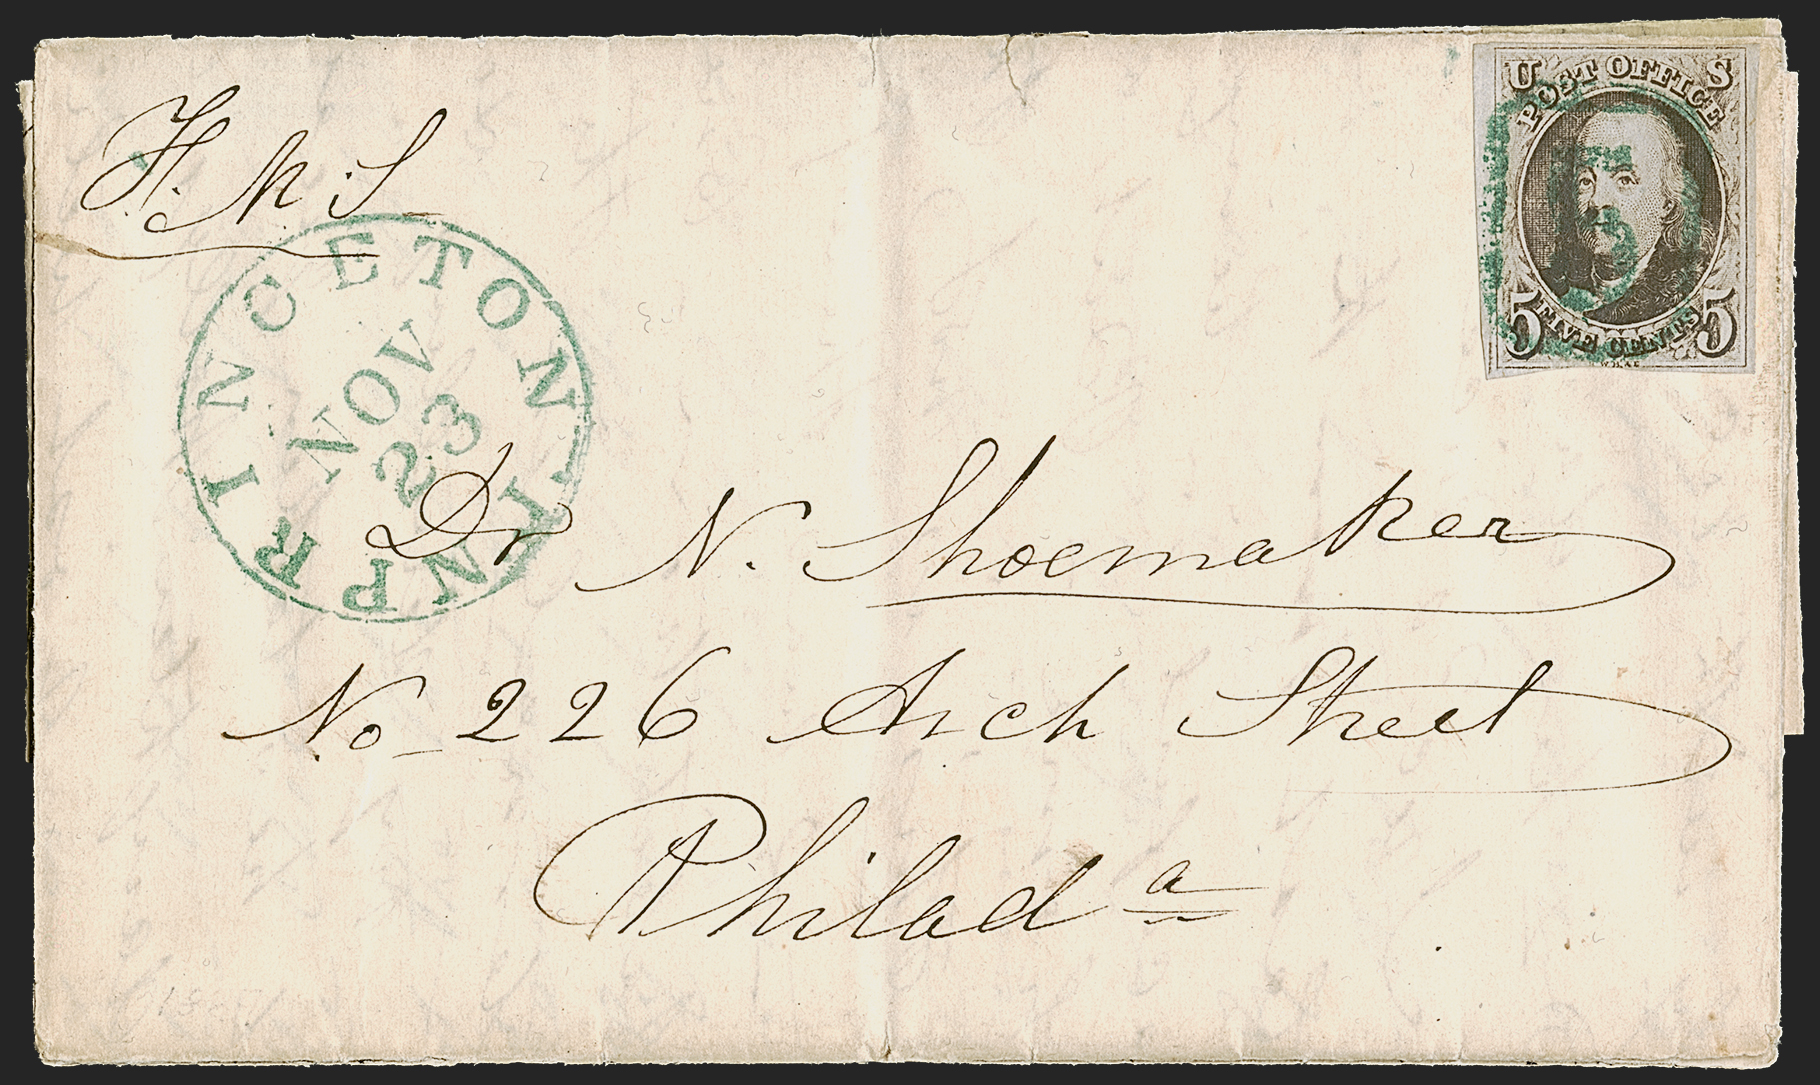 H. M. S.
PRINCETON N.J.
NOV
23
U S
POST OFFICE
5
5 FIVE CENTS 5
Dr N. Shoemaker
No 226 Arch Street
Philad a